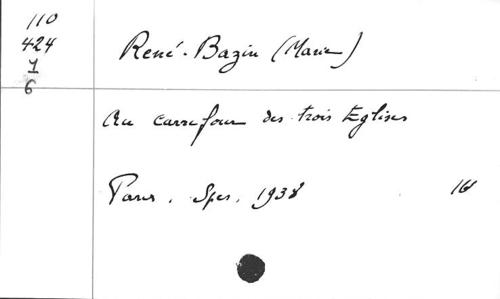 110
424
1
6
René-Bazin (Marie)
Au carrefour des trois Eglises
Paris. Spes. 1938
16